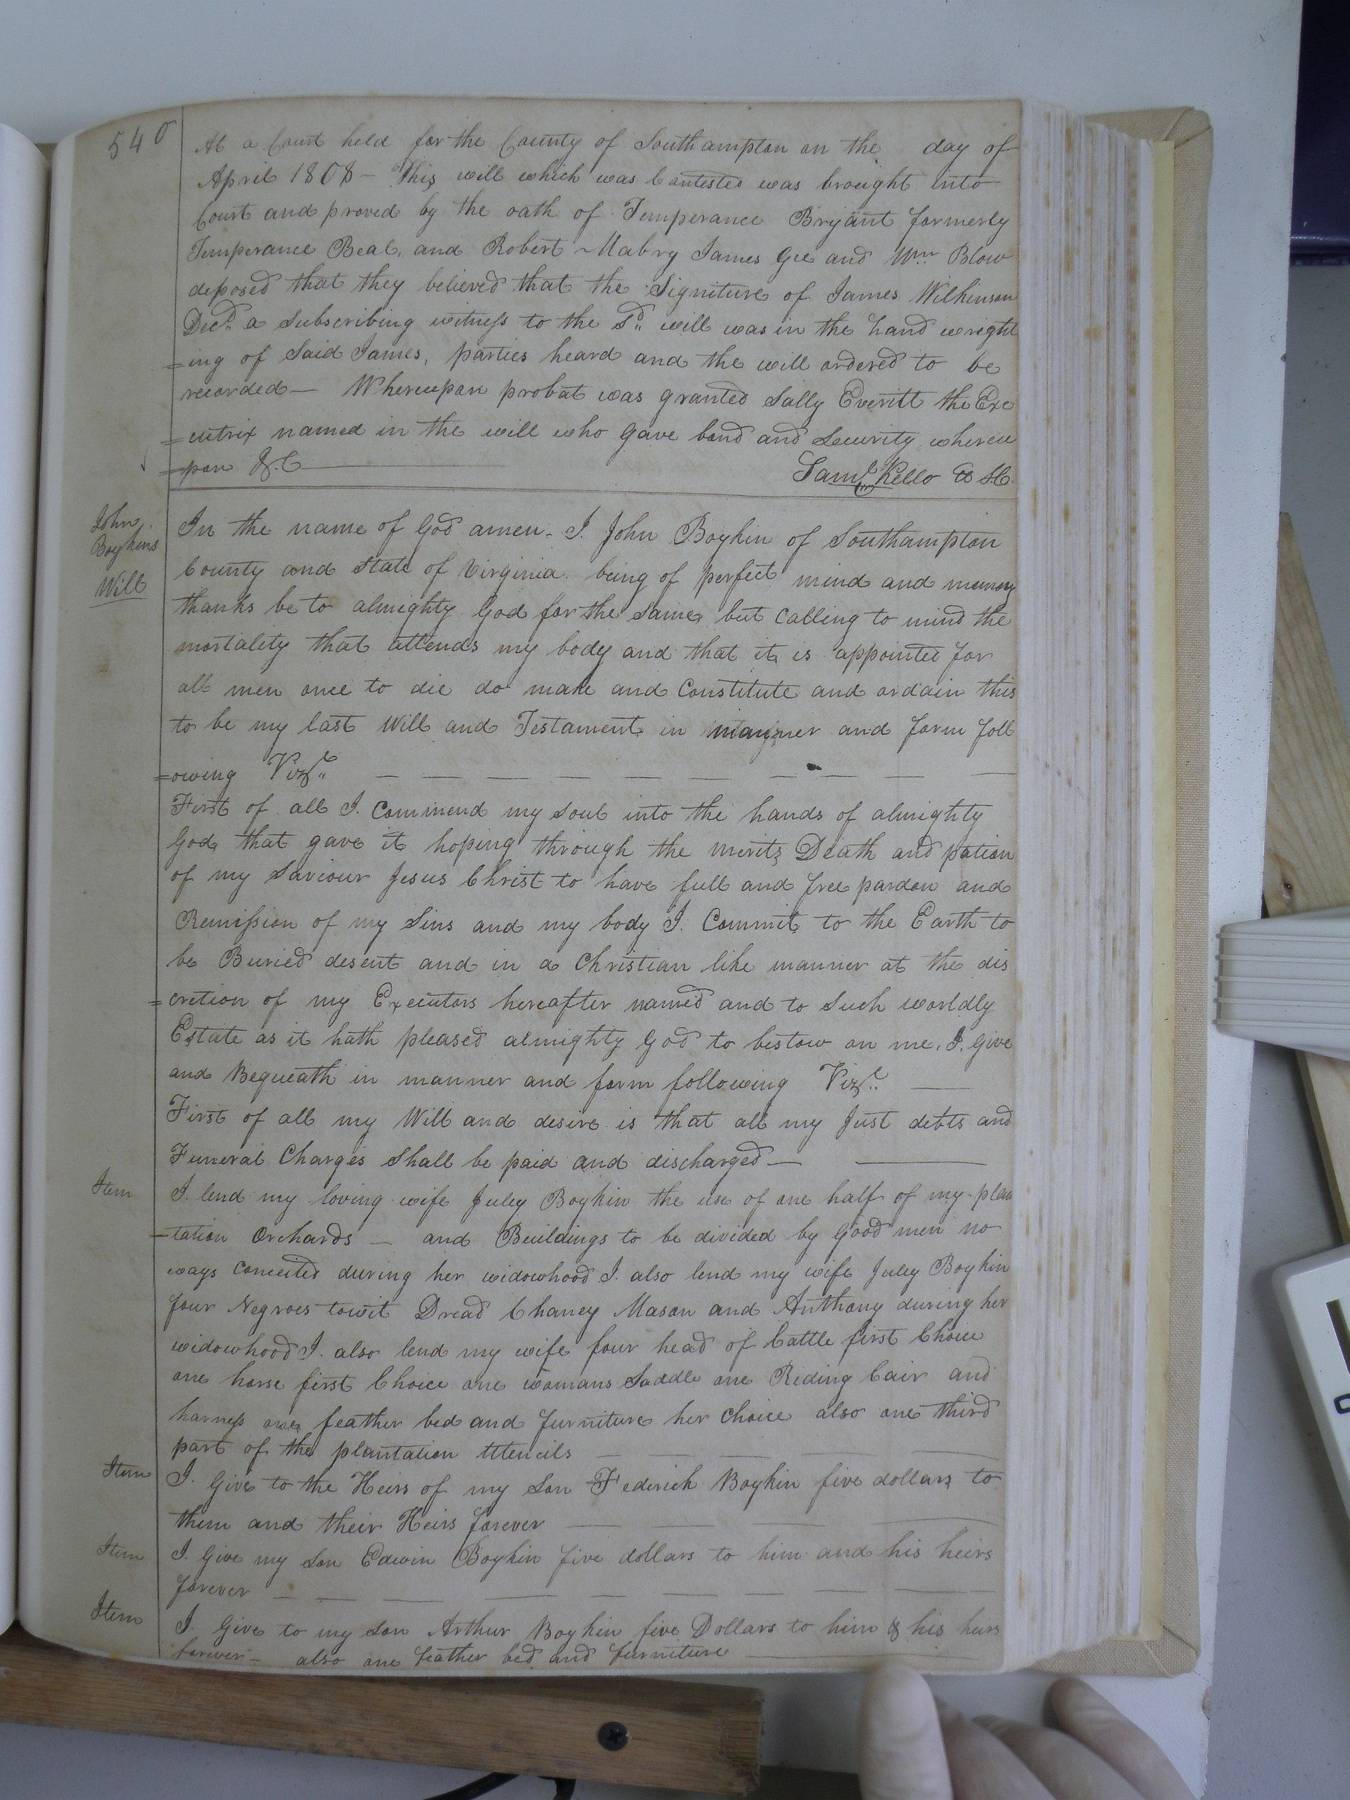 540
At a Court held for the County of Southampton on the day of
April 1808 - This will which was Contested was brought into
Court and proved by the oath of Temperance Bryant formerly
Temperance Beal, and Robert Mabry James Gee and Wm Blow
deposed that they believed that the Signiture of James Wilkinson
Decd. a Subscribing witness to the Sd. will was in the hand wright
=ing of Said James, parties heard and the will ordered to be
recorded - Whereupon probat was granted Sally Everitt the Exe
=cutrix named in the will who gave bond and Security whereu
=pon &.C
Saml. Kello
John
Boykins
Will
In the name of God amen. I. John Boykin of Southampton
County and State of Virginia being of perfect mind and memory
thanks be to almighty God for the same, but Calling to mind the
mortality that attends my body and that it is appointed for
all men once to die do make and Constitute and ordain this
to be my last Will and Testament in manner and form foll
=owing Vizt.
First of all I. Commend my Soul into the hands of almighty
God, that gave it hoping through the merits Death and pation
of my Saviour Jesus Christ to have full and free pardon and
Remission of my Sins and my body I. Commit to the Earth to
be Buried desent and in a Christian like manner at the dis
=cretion of my Executors hereafter named and to Such worldly
Estate as it hath pleased almighty God to bestow on me, I. Give
and Bequeath in manner and form following Vizt.
First of all my Will and desire is that all my Just debts and
Funeral Charges Shall be paid and discharged -
Item
I. lend my loving wife Juley Boykin the use of one half of my plan
=tation Orchards - and Buildings to be divided by Good men no
ways Conceited during her widowhood I. also lend my wife Juley Boykin
four Negroes towit Dread Chaney Mason and Anthony during her
widowhood I. also lend my wife four head of Cattle first Choice
one horse first Choice one womans Saddle one Riding Cair and
harness one feather bed and furniture her Choice also one third
part of the plantation utencils
Item
I. Give to the Heirs of my Son Federick Boykin five dollars to
them and their Heirs forever
Item
I. Give my Son Edwin Boykin five dollars to him and his heirs
forever
Item
I. Give to my Son Arthur Boykin five Dollars to him & his heirs
forever - also one feather bed and furniture